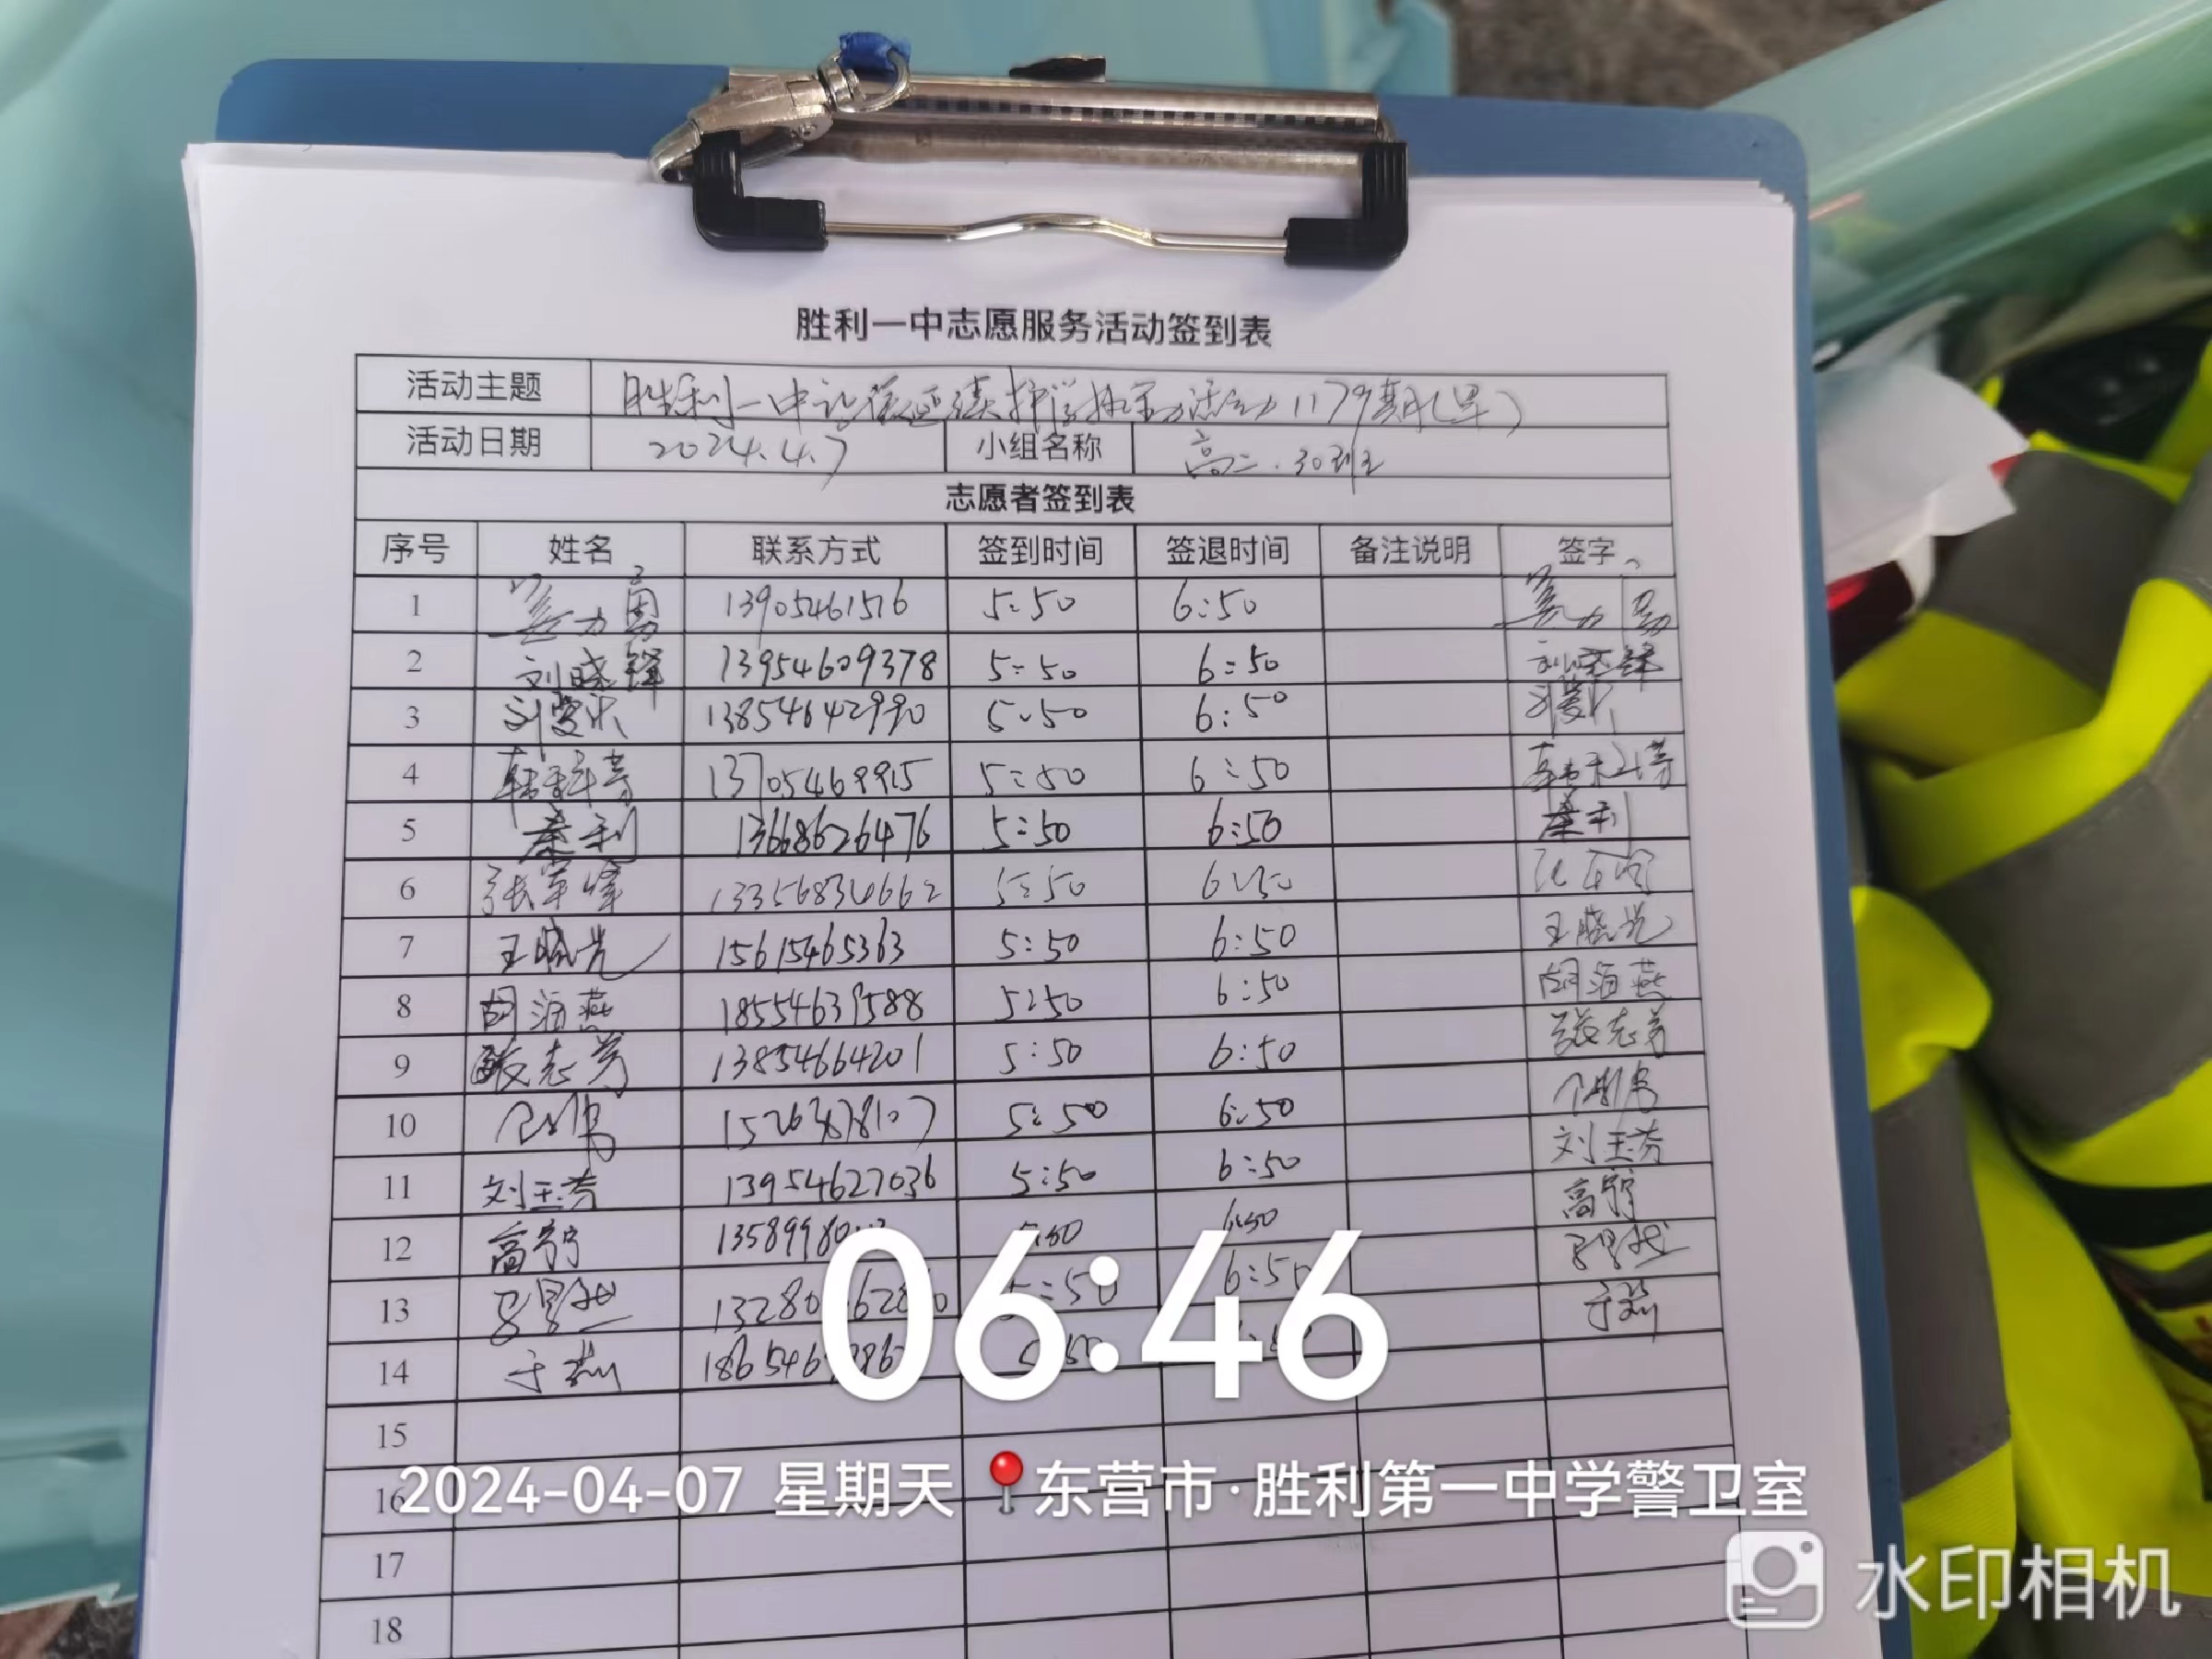 胜利一中志愿服务活动签到表
活动主题 胜利一中 护学执勤活动1179期(早)
活动日期 2024.4.7 小组名称 高二.30班
志愿者签到表
序号 姓名 联系方式 签到时间 签退时间 备注说明 签字
1 13905461516 5:50 6:50
2 刘晓锋 13954609378 5:50 6:50 刘晓锋
3 13854642990 5:50 6:50
4 13705468915 5:50 6:50
5 秦利 13668626476 5:50 6:50 秦利
6 张军峰 13356834662 5:50 6:50
7 王晓光 15615465363 5:50 6:50 王晓光
8 胡海燕 18554631588 5:50 6:50 胡海燕
9 张志芳 13854664201 5:50 6:50 张志芳
10 5:50 6:50
11 刘玉芳 13954627036 5:50 6:50 刘玉芳
12 高 5:50 6:50 高
13 5:50 6:50
14 于 于
15
16
17
18
06:46
2024-04-07 星期天 东营市·胜利第一中学警卫室
水印相机